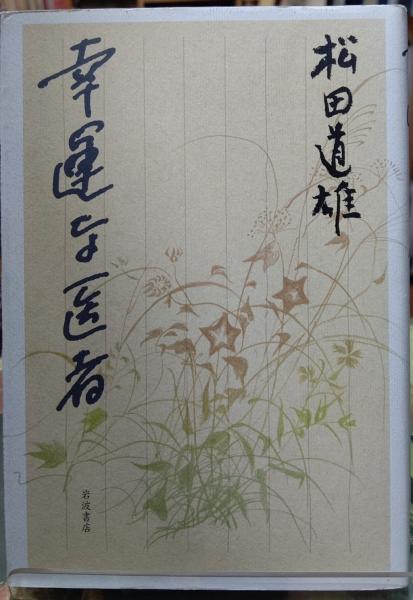 松田道雄
幸運な医者
岩波書店